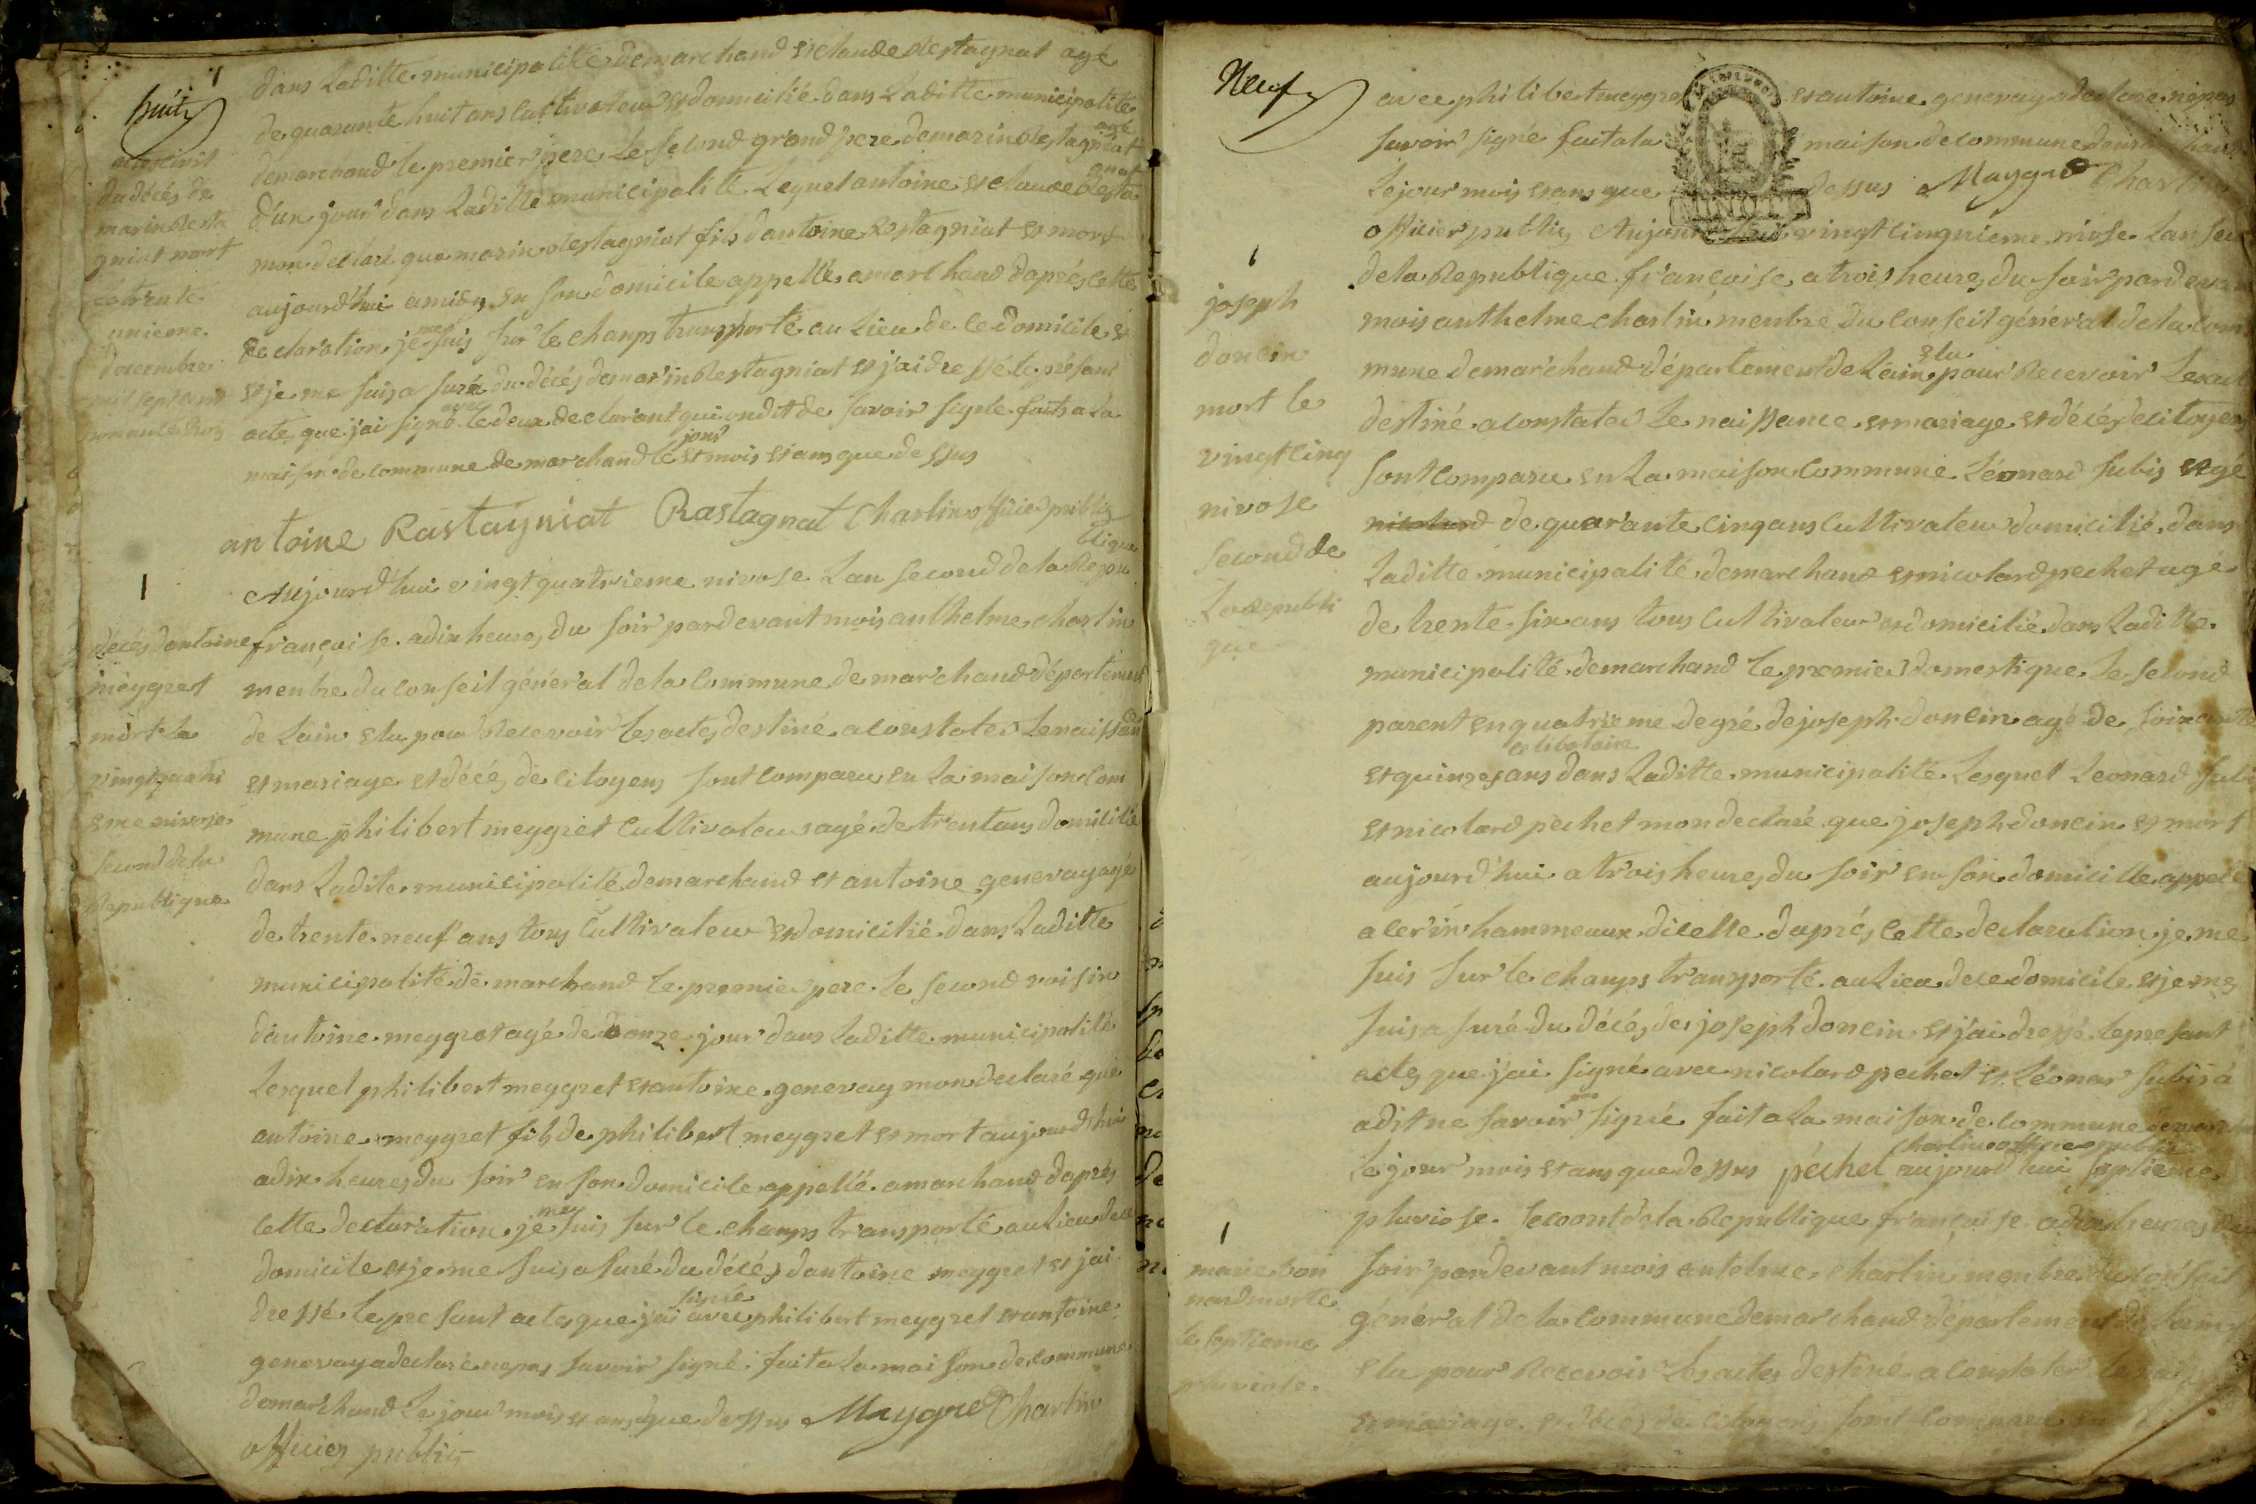 huit
acte civil
du décés de
marin Resta
gniat mort
le trente
unieme
decembre
mil sept cent
nonante trois
dans Laditte municipalité demarchand et claude Restagnat agé
de quarante huit ans cultivateur et domicilié dans Laditte municipalité
demarchand le premier pere Le second grand pere demarin Restagniat agé
d'un jour dans Laditte municipalité Lequel antoine et claude Resta gnat
mon declaré que marin Restagniat fils d'antoine Restagniat et mort
aujourd'hui amidy en son domicile appellé amarchand d'aprés cette
declaration je me suis sur le champs transporté au Lieu de ce domicile et
et je me suis a suré du décés demarin Restagniat et j'ai dressé le présant
acte que j'ai signé avec le deux declarant qui ondit de savoir signé fait a La
maison de commune de marchand le jour et mois et ans que dessus
antoine Rastaigniat Rastagnat Charlin officier public
décés dantoine
meygret
mort Le
vingt quatri
eme nivose
second de la
Republique
Aujourd'hui vingt quatrieme nivose Lan second de la Repu blique
françaîse adix heures du soir pardevant mois anthelme charlin
menbre du conseil général de la Commune de marchand département
de Lain elu pour Recevoir les actes destiné a constater Le naissanc
et mariage et décés de citoyens sont comparu en La maison com
mune philibert meygret cultivateur agé de trent ans domicilié
dans Ladite municipalité demarchand et antoine genevay agé
de trente neuf ans tous cultivateur et domicilié dans Laditte
municipalité de marchand le premier pere le second voisin
dantoine meygret agé de onze jour dans Laditte municipalité
Lequel philibert meygret et antoine genevay mon declaré que
antoine meygret fils de philibert meygret et mort aujourd'hui
adix heures du soir en son domicile appellé amarchand d'aprés
cette declaration je me suis sur le champs transporté au lieu de ce
domicile et je me suis a suré du décés dantoine meygret et jai
dressé le pre sant acte que j'ai signé avec philibert meygret et antoine
genevay a declaré nepas savoir signé fait a La maison de commune
demarchand Le jour mois et ans que dessus Maygret Charlin
officier public
Neuf
avec philibert meygret et antoine genevay a declaré nepas
savoir signé fait ala maison de commune demarchand
Le jour mois et ans que dessus Maygret Charlin
MINUTE
officier public Aujourd'hui vingt cinquieme nivose Lan second
joseph
doncin
mort le
vingt cinq
nivose
second de
La republi
que
de la Republique françaîse a trois heures du soir pardevant
mois anthelme charlin menbre du conseil général de la com
mune demarchand département de Lain elu pour Recevoir Les acte
destiné aconstater Le naissance et mariage et décés de citoyens
sont comparu en La maison commune Léonard subis agé
de quarante cinq ans cultivateur domicilié dans
Laditte municipalité demarchand et nicolard pechet agé
de trente six ans tous cultivateur et domicilié dans Laditte
municipalité demarchand le premier domestique Le second
parent en quatrieme degré de joseph doncin agé de soixante
et quinzes ans celibataire dans Laditte municipalité Lesquel Leonard subis
et nicolard pechet mon declaré que joseph doncin et mort
aujourd'hui a trois heures du soir en son domicille appellé
a cerin hammeaux dicelle daprés cette declaration je me
suis sur le champs transporté au Lieu de ce domicile et je me
suis a suré du décés de joseph doncin et j'ai dressé le presant
acte que j'ai signé avec nicolard pechet et Léonar subis a
adit ne savoir signé fait a La maison de commune demarchand
Le jour mois et ans que dessus péchet charlin officier public aujourd'hui septieme
marie bon
nard morte
le septieme
pluviose
pluviose second de la Republique françaîse adix heures du
soir pardevant mois antelme charlin menbre du conseil
général de la commune demarchand département de Lain
elu pour Recevoir Les actes destiné a constater le nais
et mariage et décés de citoyens sont comparu en La